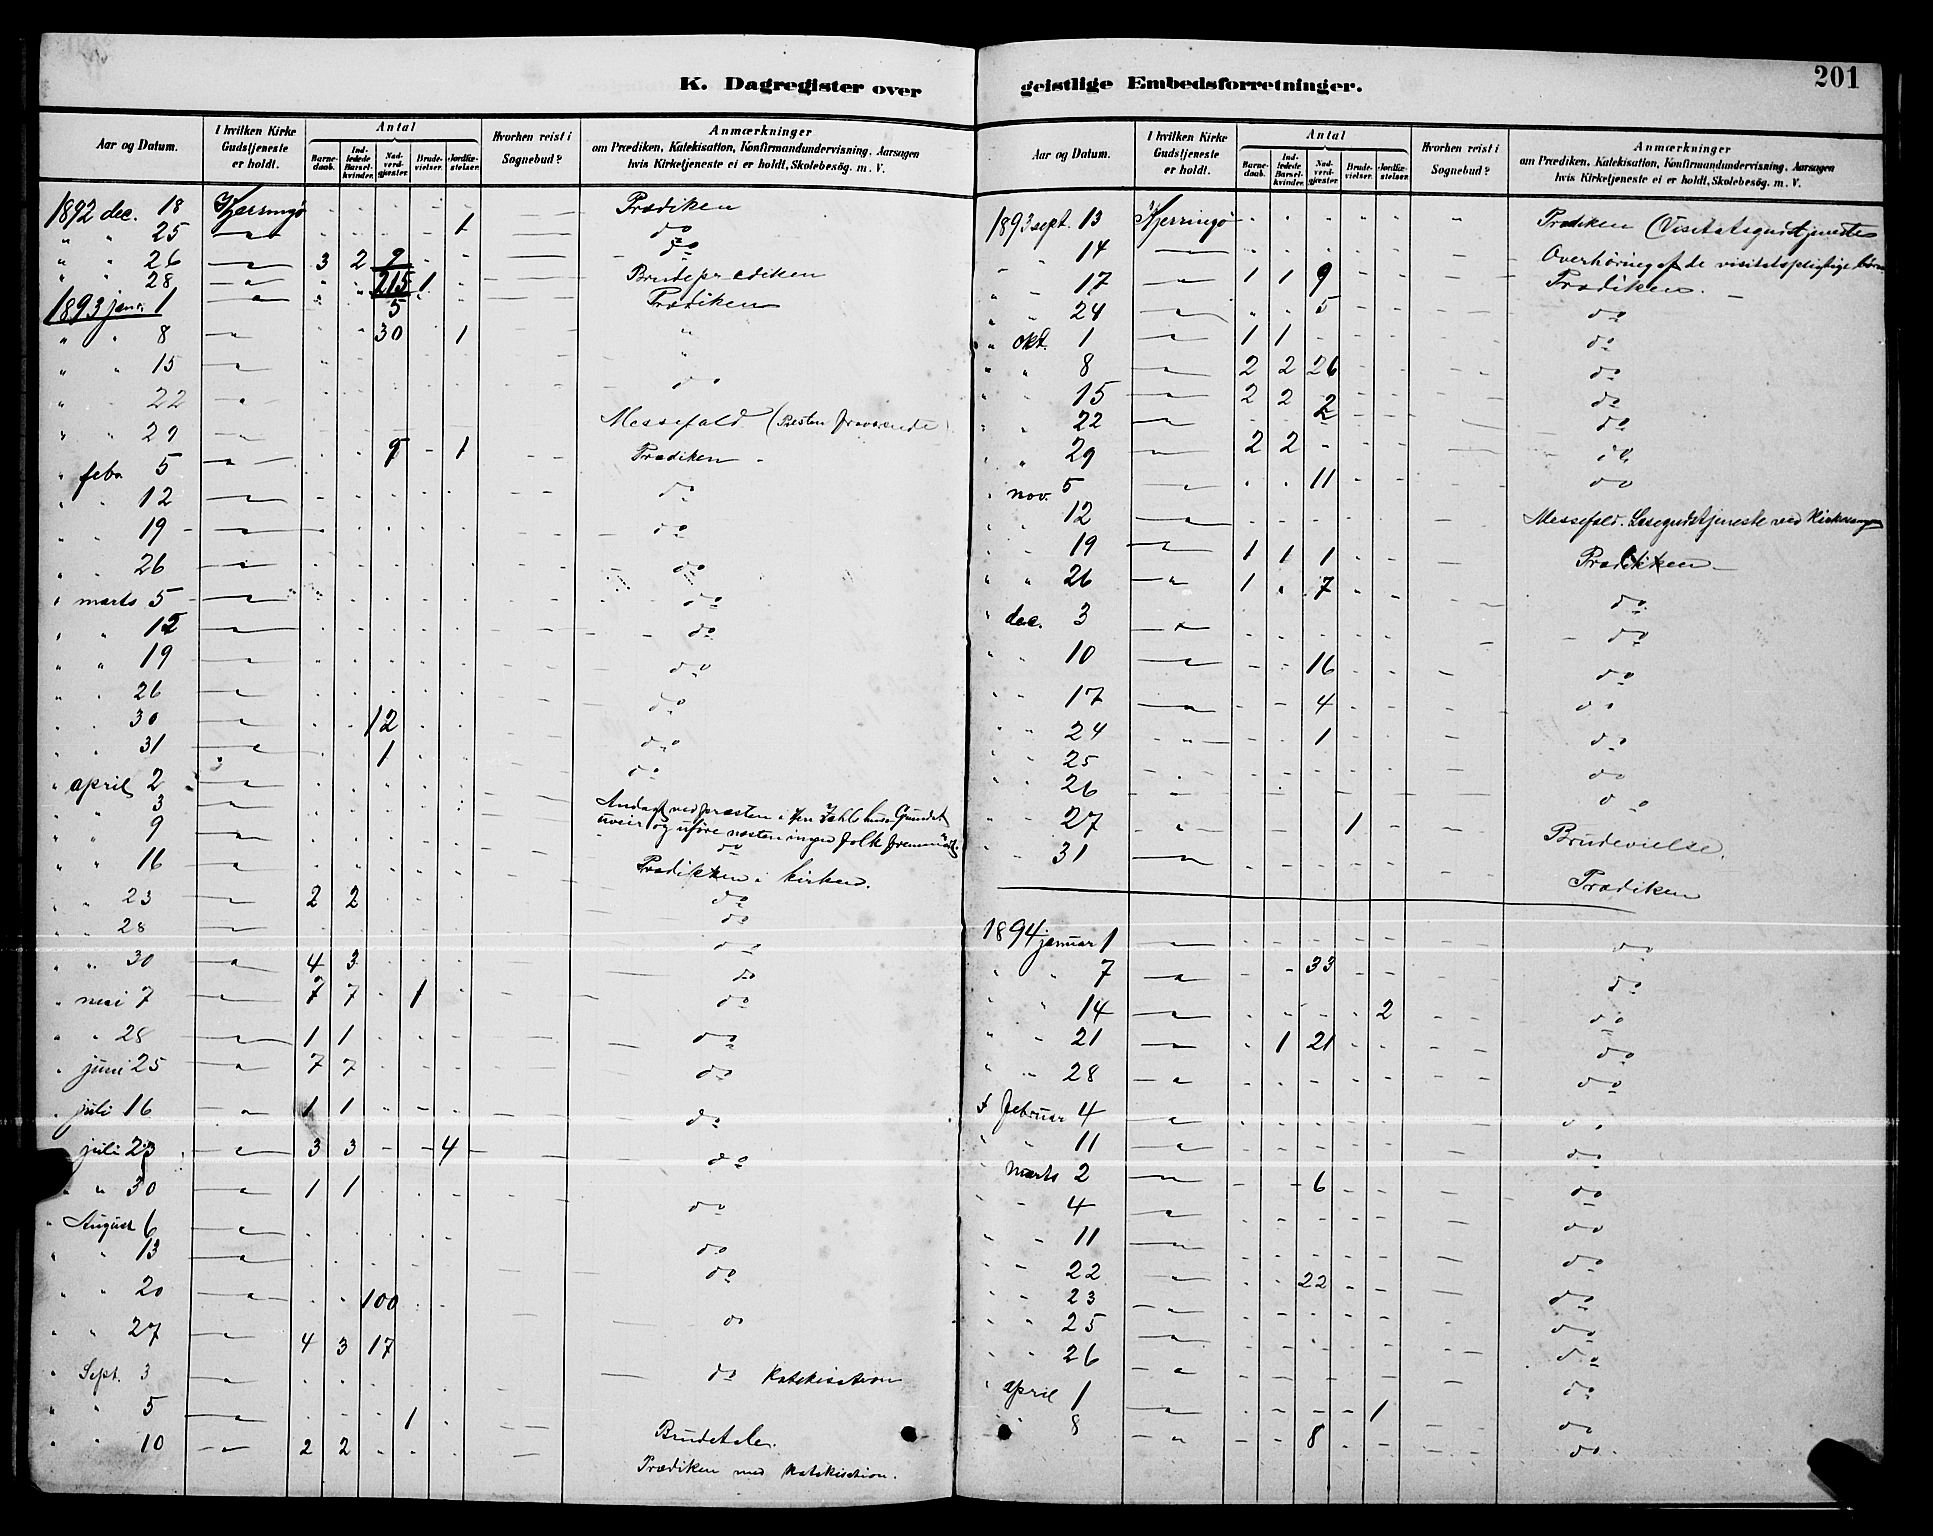 201
K. Dagregister over geistlige Embedsforretninger.
Aar og Datum. I hvilken Kirke Gudstjeneste er holdt. Antal Barnedaab. Indledede Barselkvinder. Nadverdgjester. Brudevielser. Jordfæstelser. Hvorhen reist i Sognebud? Anmærkninger om Prædiken, Katekisation, Konfirmandundervisning, Aarsagen hvis Kirketjeneste ei er holdt, Skolebesög. m. V.
1892 dec. 18 Kjerringø - - - - - Prædiken
" " 25 — " — - - - - 1 do
" " 26 — " — 3 2 9 - - do
" " 28 — " — " " 1 " Brudeprædiken
215
1893 jan. 1 — " — " " 5 " " Prædiken
" " 8 — " — - - 30 - 1 "
" " 15 — " — - - - - - "
" " 22 — " — - - - - - do
" " 29 Messefald (Presten fraværende)
" febr 5 — " — - - 9 - 1 Prædiken -
" " 12 — " — - - - - - do
" " 19 — " — - - - - - do
" " 26 — " — - - - - - do
" marts 5 — " — - - - - - do
" " 12 — " — - - - - - do
" " 19 — " — - - - - - do
" " 26 — " — - - - - - do
" " 30 — " — - - 12 - - do
" " 31 — " — - - 1 - - do
" april 2 — " — - - - - -
" " 3 — " — - - - - - Andagt ved præsten i hus. Grundet
" " 9 — " — - - - - - uveir og uføre næsten ingen folk fremmødt.
do
" " 16 — " — - - - - - Prædikken i kirken.
" " 23 — " — 2 2 - - - do
" " 28 — " — - - - - - do
" " 30 — " — 4 3 - - - do
" mai 7 — " — 7 7 - 1 - do
" " 28 — " — 1 1 - - - do
" juni 25 — " — 7 7 - - - do
" juli 16 — " — 1 1 - - - do
" juli 23 — " — 3 3 - - 4 do
" " 30 — " — 1 1 - - - do
" August 6 — " — - - - - - do
" " 13 — " — - - - - - do
" " 20 — " — - - 100 - - do
" " 27 — " — 4 3 17 do
" Sept. 3 — " — - - - - - do Katekisation
" " 5 — " — - - - 1 - Brudetale.
" " 10 — " — 2 2 - - - Prædiken med katekisation.
Aar og Datum. I hvilken Kirke Gudstjeneste er holdt. Antal Barnedaab. Indledede Barselkvinder. Nadverdgjester. Brudevielser. Jordfæstelser. Hvorhen reist i Sognebud? Anmærkninger om Prædiken, Katekisation, Konfirmandundervisning, Aarsagen hvis Kirketjeneste ei er holdt, Skolebesög. m. V.
1893 sept. 13 Kjerringø - - - - - Prædiken (Visitatsgudstjeneste
" " 14 — " — - - - - - Overhøring af de visitatspligtige børn
" " 17 — " — 1 1 9 - - Prædiken. —
" " 24 — " — " - 5 - - do
" okt. 1 — " — 1 1 - - - do
" " 8 — " — 2 2 26 - - do
" " 15 — " — 2 2 - - do
" " 22 — " — - - 2 - - do
" " 29 — " — 2 2 - - - do
" nov. 5 — " — - - 11 - - do
" " 12 — " — - - - - - Messefald. Læsegudstjeneste ved Kirkesanger
" " 19 — " — 1 1 1 - - Prædikken —
" " 26 — " — 1 - 7 - - do
" dec. 3 — " — - - - - - do
" " 10 — " — - - 16 - - do
" " 17 — " — - - 4 - - do
" " 24 — " — - - 1 - - do
" " 25 — " — - - - - - do
" " 26 — " — - - - - - do
" " 27 — " — - - - 1 - Brudevielse.
" " 31 — " — - - - - - Prædiken
1894 januar 1 — " — - - - - - do
" " 7 — " — - - 33 - - do
" " 14 — " — - - - - 2 do
" " 21 — " — - 1 21 - - do
" " 28 — " — - - - - - do
" februar 4 — " — - - - - - do
" " 11 — " — - - - - - do
" marts 2 — " — - - 6 - - do
" " 4 — " — - - - - - do
" " 11 — " — - - - - - do
" " 22 — " — - - 22 - - do
" " 23 — " — - - - - - do
" " 25 — " — - - - - - do
" " 26 — " — - - - - - do
" april 1 — " — - - - - 1 do
" " 8 — " — - - 8 - - do